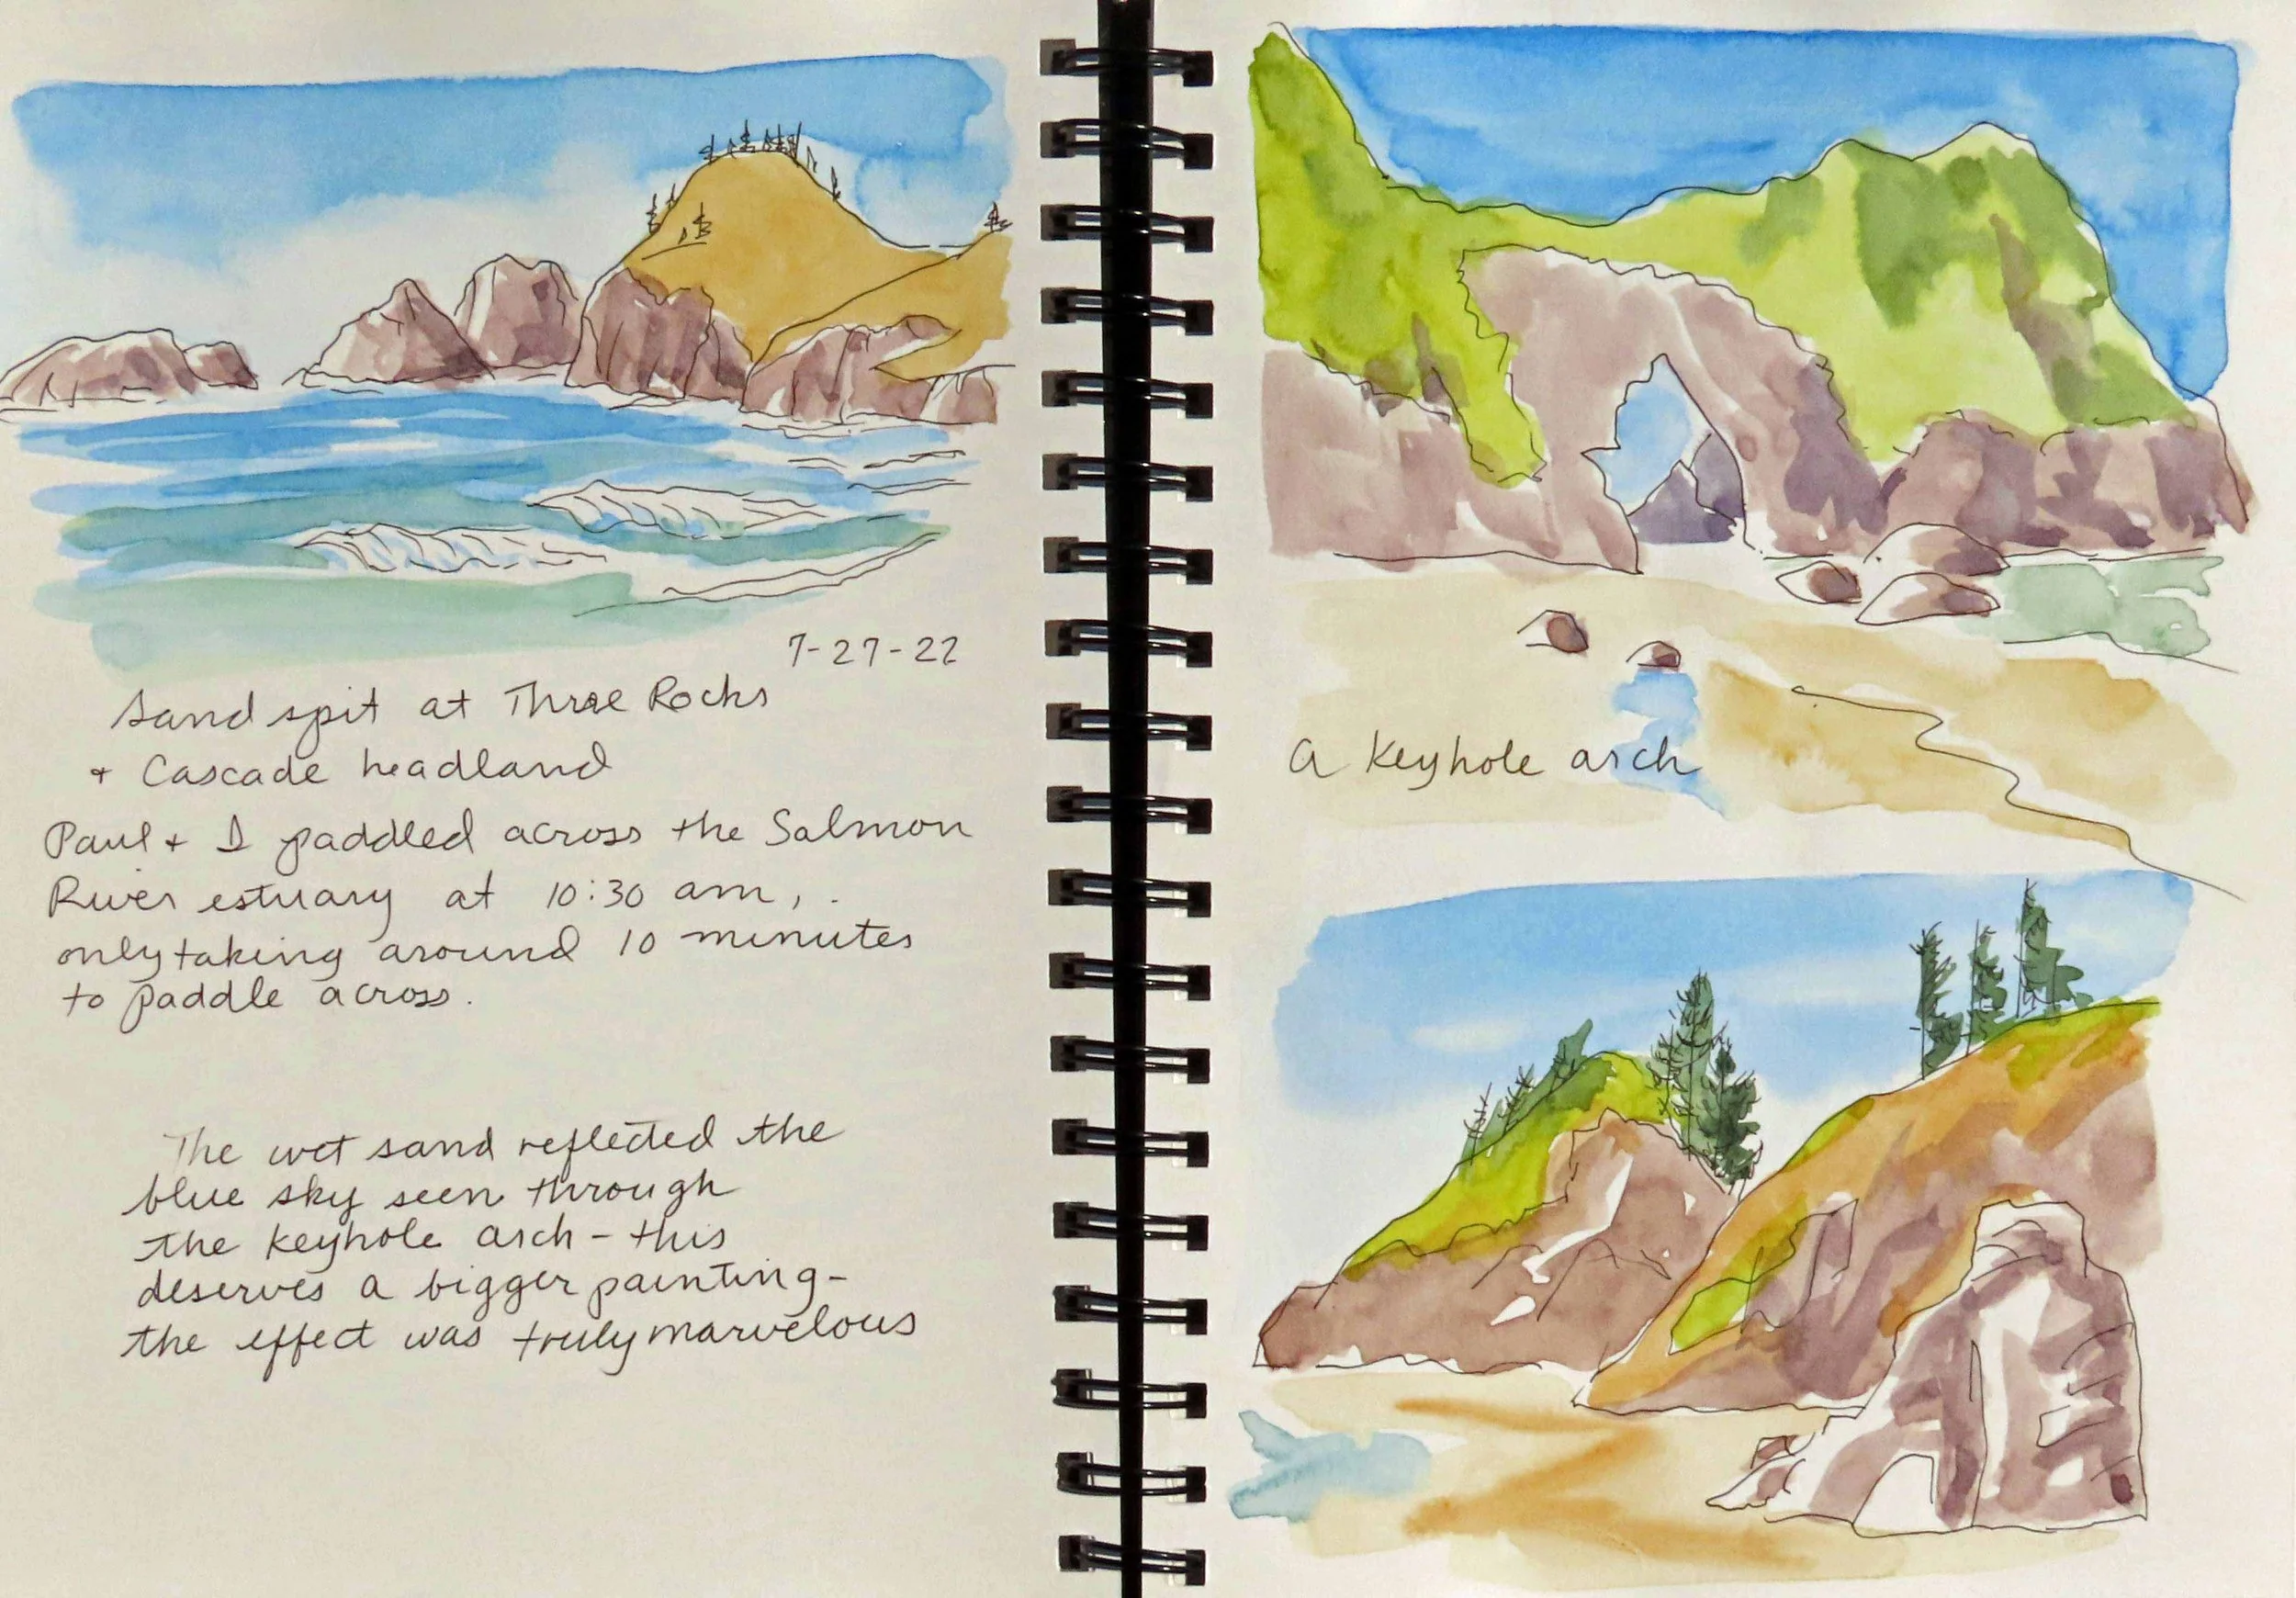 7-27-22
Sand spit at Three Rocks
+ Cascade headland
Paul + I paddled across the Salmon
River estuary at 10:30 am,
only taking around 10 minutes
to paddle across.
The wet sand reflected the
blue sky seen through
the keyhole arch - this
deserves a bigger painting -
the effect was truly marvelous
A keyhole arch